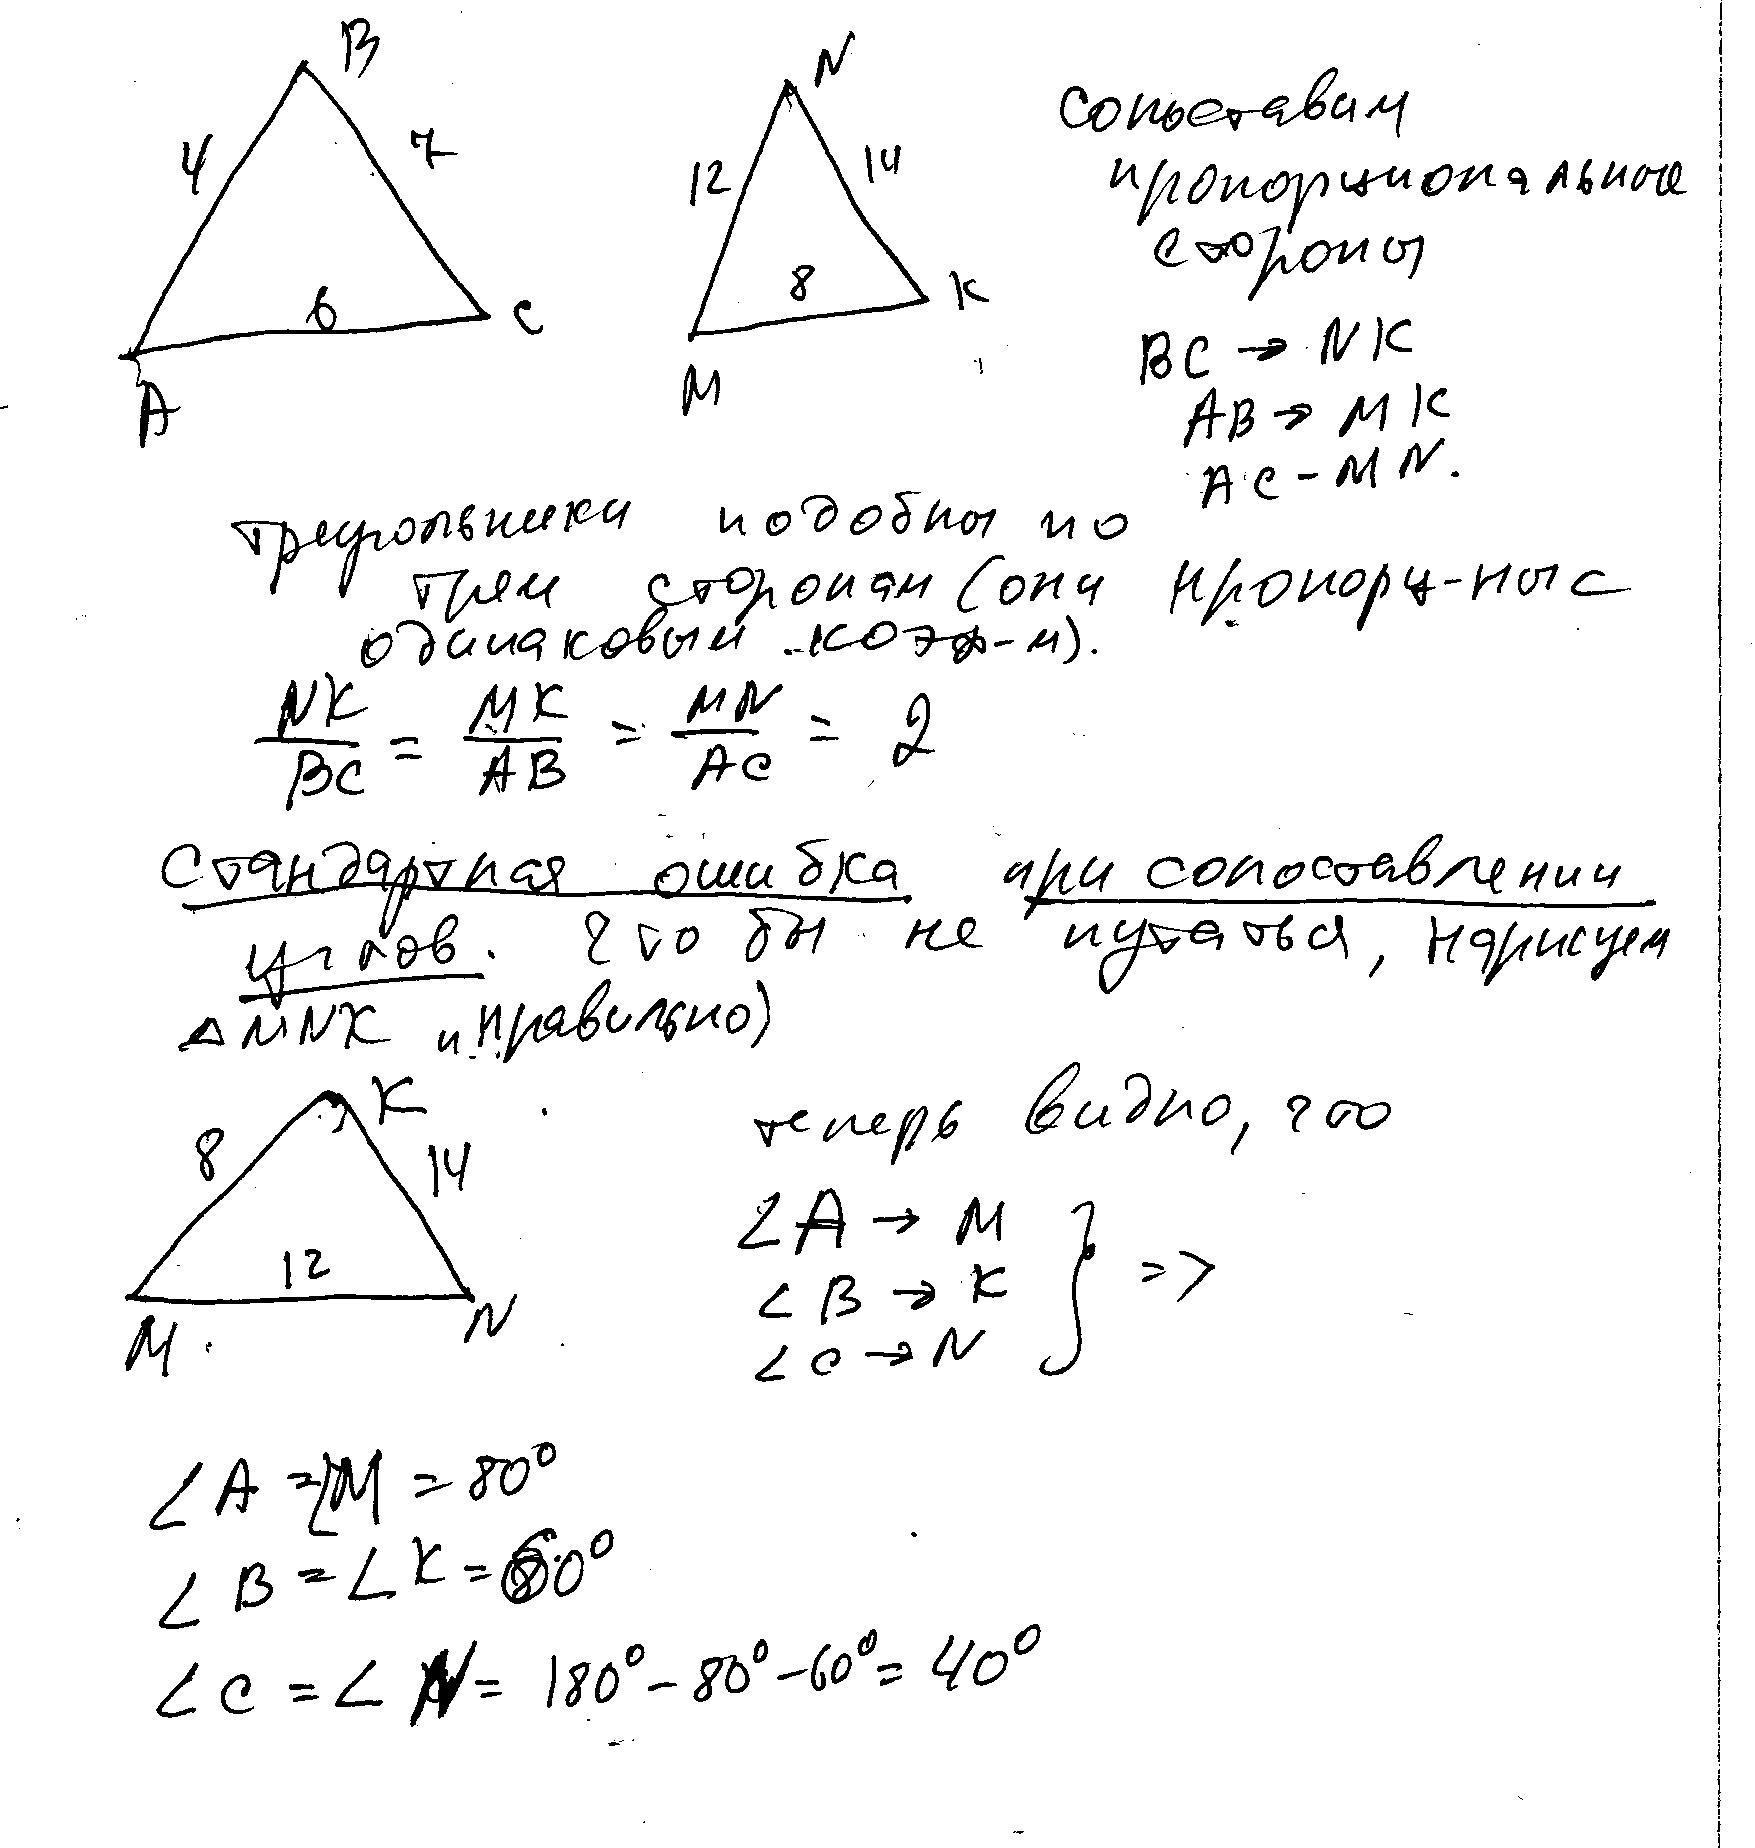 B
4
7
6
C
A
N
12
14
8
K
M
Сопоставим
пропорциональные
стороны
BC → NK
AB → MK
AC - MN.
треугольники подобны по
трем сторонам (они пропорц-ны с
одинаковым коэф-м).
NK/BC = MK/AB = MN/AC = 2
Стандартная ошибка при сопоставлении
углов. Что бы не путаться, нарисуем
△MNK "правильно)
K
8
14
12
M.
N
теперь видно, что
∠A → M
∠B → K
∠C → N
} =>
∠A = ∠M = 80°
∠B = ∠K = 60°
∠C = ∠N = 180° - 80° - 60° = 40°